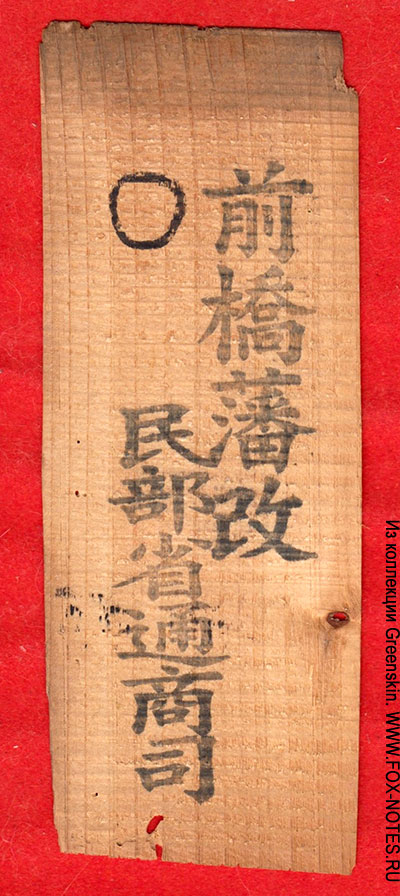 前橋藩改
○
民部省通商司
Из коллекции Greenskin. WWW.FOX-NOTES.RU